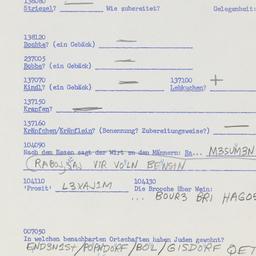 138080
Striezel? Wie zubereitet? Gelegenheit:
138120
Bochte? (ein Gebäck)
237005
Bobbe? (ein Gebäck)
137070 137100
Kindl? (ein Gebäck) Lebkuchen? +
137150
Krapfen?
137160
Kräpfchen/Kräpflein? (Benennung? Zubereitungsweise?)
104090
Nach dem Essen sagt der Wirt zu den Männern: Ra... MƎSUMƎN
(RABOJSAJ VIR VO'LN BENSJN
104110 104130
'Prosit' LƎXAJ1M Die Broche über Wein:
... BOURƎ BRI HAGOF
007050
In welchen benachbarten Ortschaften haben Juden gewohnt?